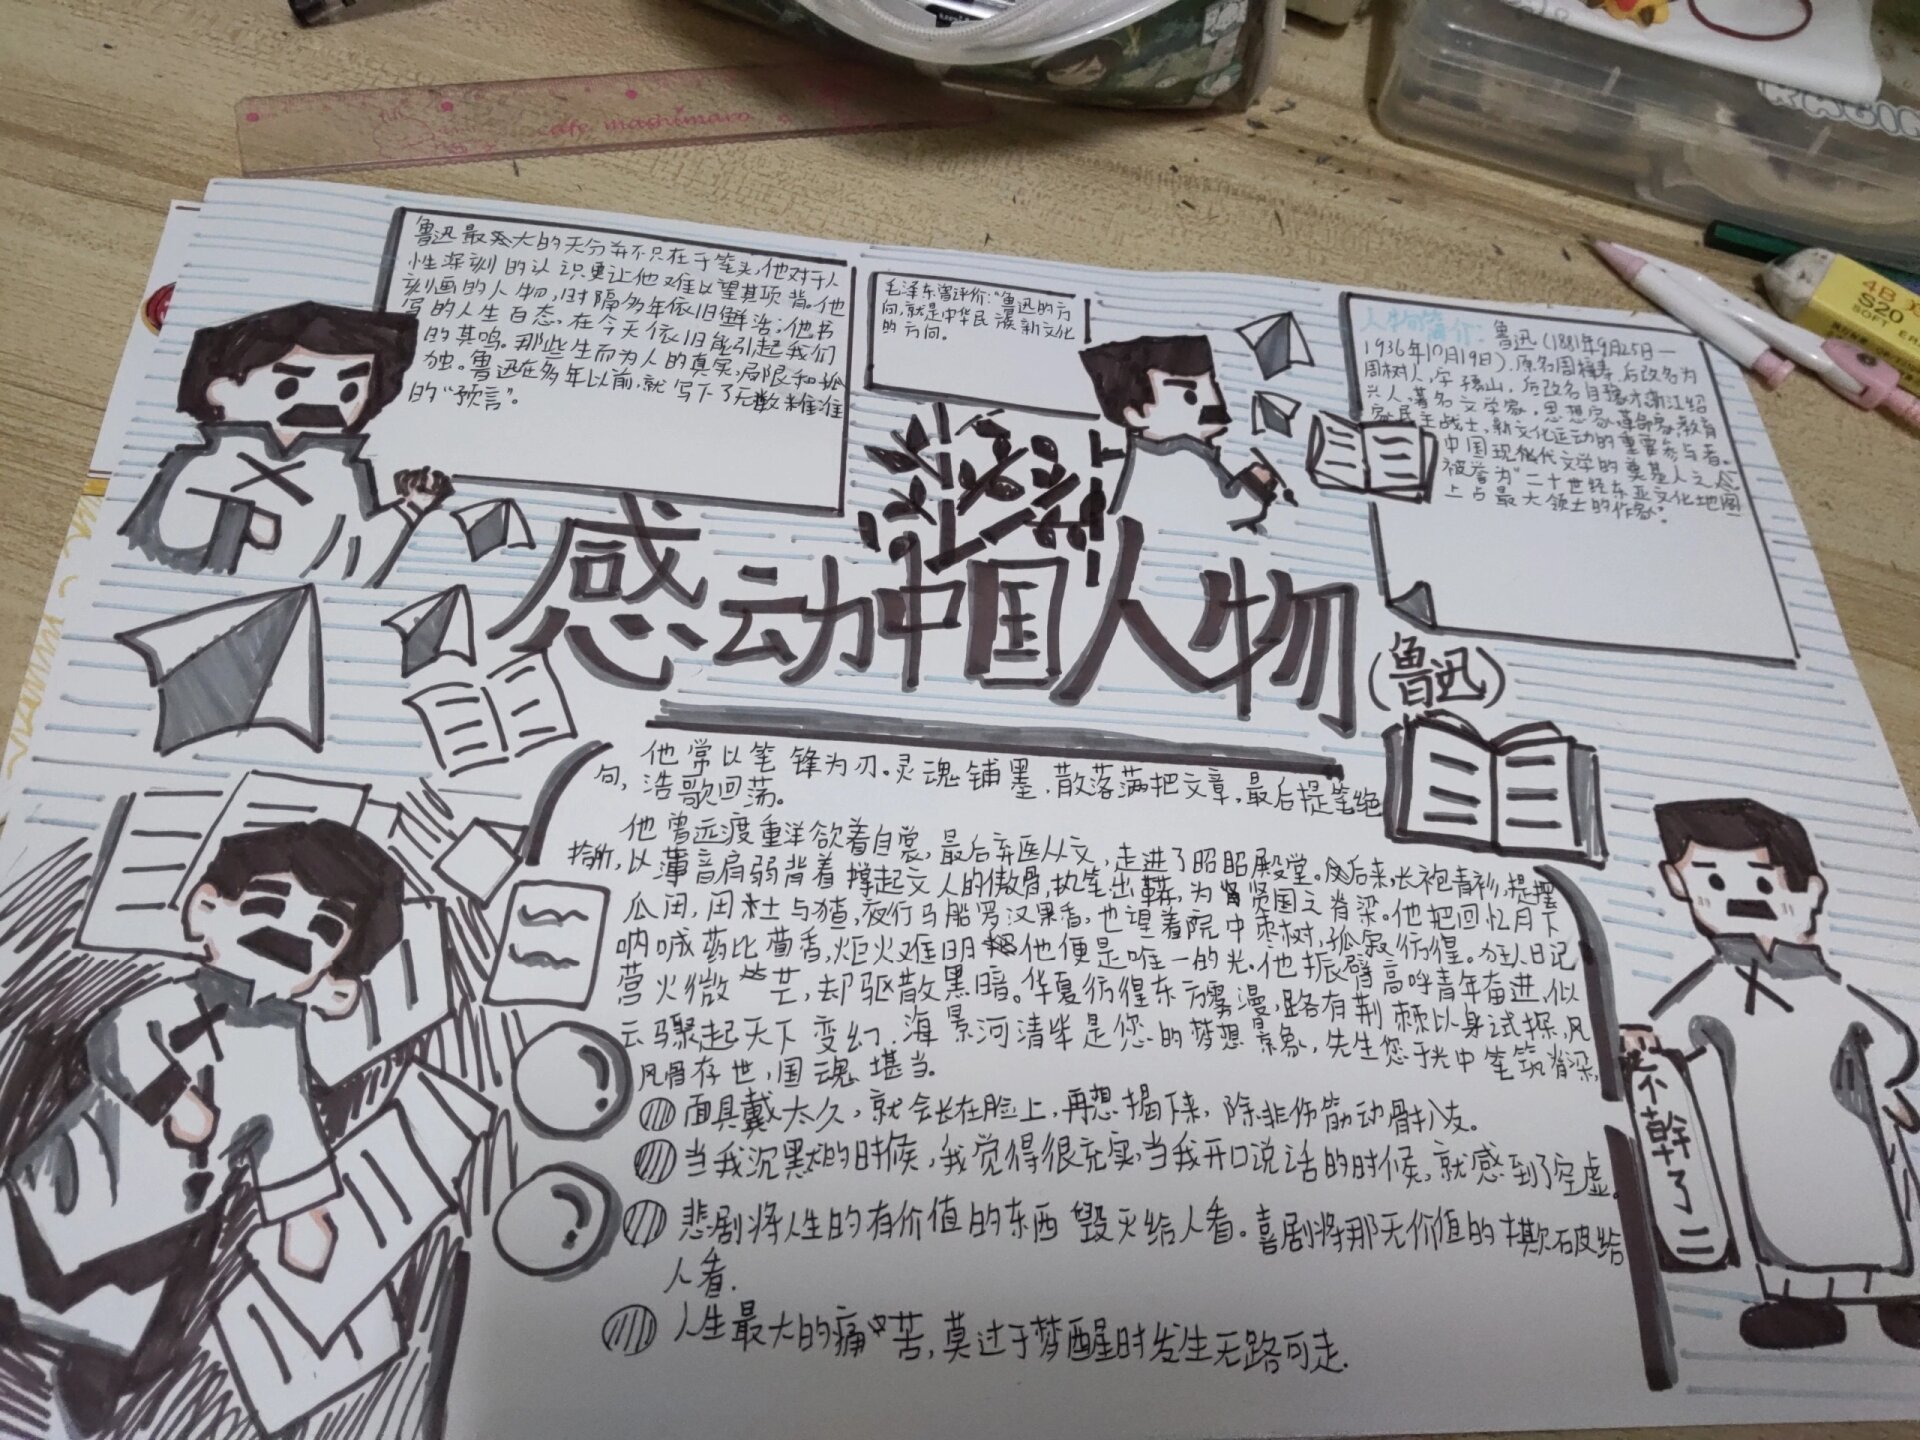 cafe mashimaro
鲁迅最大的天分并不只在于笔头,他对于人
性深刻的认识更让他难以望其项背。他
刻画的人物,时隔多年依旧鲜活;他书
写的人生百态,在今天依旧能引起我们
的共鸣。那些生而为人的真实,局限和孤
独。鲁迅在多年以前,就写下了无数精准
的“预言”。
毛泽东曾评价:“鲁迅的方
向,就是中华民族新文化
的方向。
人物简介:鲁迅(1881年9月25日—
1936年10月19日),原名周樟寿,后改名为
周树人,字豫山,后改名豫才,浙江绍
兴人,著名文学家,思想家,革命家,教育
家,民主战士,新文化运动的重要参与者。
中国现代文学的奠基人之一。
被誉为“二十世纪东亚文化地图
上占最大领土的作家”。
4B
S20
SOFT
感动中国人物
(鲁迅)
他常以笔锋为刃。灵魂铺墨,散落满把文章,最后提笔绝
句,浩歌回荡。
他曾远渡重洋欲着白裳,最后弃医从文,走进了昭昭殿堂。后来,长袍青衫,提摆
抬昕,以薄音肩弱背着撑起文人的傲骨,执笔出鞘,为贤国之脊梁。他把回忆月下
瓜田,闰土与猹,夜行马船罗汉果香,也望着院中枣树,孤寂彷徨。狂人日记
呐喊药比茴香,炬火难明他便是唯一的光。他振臂高呼青年奋进,似
萤火微芒,却驱散黑暗。华夏彷徨东方雾漫,路有荆棘以身试探,风
云骤起天下变幻.海晏河清毕是您的梦想景象,先生您于光中笔筑脊梁,
风骨存世,国魂堪当。
面具戴太久,就会长在脸上,再想揭下来,除非伤筋动骨扒皮。
当我沉默的时候,我觉得很充实,当我开口说话的时候,就感到了空虚。
悲剧将人生的有价值的东西毁灭给人看。喜剧将那无价值的撕破给
人看.
人生最大的痛苦,莫过于梦醒时发生无路可走.
不幹了二